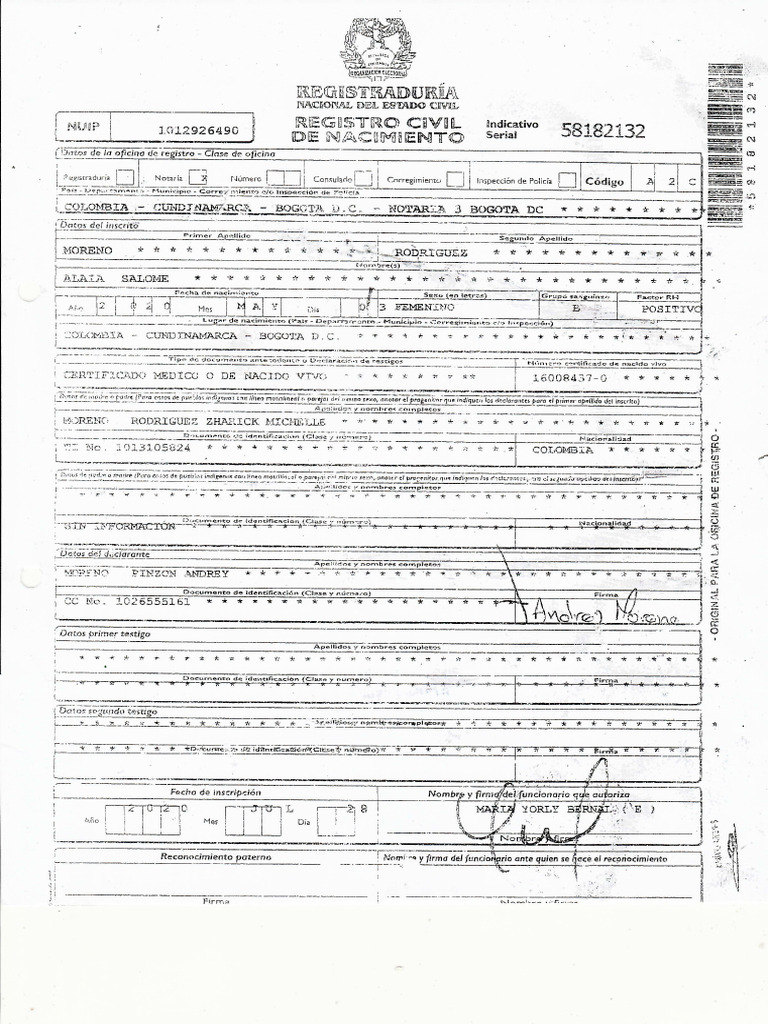 ORGANIZACION ELECTORAL
REGISTRADURÍA
NACIONAL DEL ESTADO CIVIL
NUIP 1012926490
REGISTRO CIVIL
DE NACIMIENTO
Indicativo
Serial 58182132
Datos de la oficina de registro - Clase de oficina
Registraduría Notaría X Número Consulado Corregimiento Inspección de Policía Código A 2 C
País - Departamento - Municipio - Corregimiento e/o Inspección de Policía
COLOMBIA - CUNDINAMARCA - BOGOTA D.C. - NOTARIA 3 BOGOTA DC * * * * * * * * *
Datos del inscrito
Primer Apellido Segundo Apellido
MORENO * * * * * * * * * * * * * * * RODRIGUEZ * * * * * * * * * * * *
Nombre(s)
ALAIA SALOME * * * * * * * * * * * * * * * * * * * * * * * * * * * * *
Fecha de nacimiento Sexo (en letras) Grupo sanguíneo Factor RH
Año 2 0 2 0 Mes M A Y Día 0 3 FEMENINO B POSITIVO
Lugar de nacimiento (País - Departamento - Municipio - Corregimiento e/o Inspección)
COLOMBIA - CUNDINAMARCA - BOGOTA D.C. * * * * * * * * * * * * * * * * * * * *
Tipo de documento antecedente o Declaración de testigos Número certificado de nacido vivo
CERTIFICADO MEDICO O DE NACIDO VIVO * * * * * * * * * 16008437-0 * * * * * *
Apellidos y nombres completos
MORENO RODRIGUEZ ZHARICK MICHELLE * * * * * * * * * * * * * * * * * * * * *
Documento de identificación (Clase y número) Nacionalidad
TI No. 1013105824 * * * * * * * * * * * * * * * * COLOMBIA * * * * * *
Apellidos y nombres completos
* * * * * * * * * * * * * * * * * * * * * * * * * * * * * * * * * * *
Documento de identificación (Clase y número) Nacionalidad
SIN INFORMACION * * * * * * * * * * * * * * * * * * * * * * * * * *
Datos del declarante
Apellidos y nombres completos
MORENO PINZON ANDREY * * * * * * * * * * * * * * * * * * * * * * * * * *
Documento de identificación (Clase y número) Firma
CC No. 1026555161 * * * * * * * * * * * * * * * * Andrey Moreno
Datos primer testigo
Apellidos y nombres completos
* * * * * * * * * * * * * * * * * * * * * * * * * * * * * * * * * * *
Documento de identificación (Clase y número) Firma
* * * * * * * * * * * * * * * * * * * * * * * * * * * * * * * * * * *
Datos segundo testigo
Apellidos y nombres completos
* * * * * * * * * * * * * * * * * * * * * * * * * * * * * * * * * * *
Documento de identificación (Clase y número) Firma
* * * * * * * * * * * * * * * * * * * * * * * * * * * * * * * * * * *
Fecha de inscripción Nombre y firma del funcionario que autoriza
Año 2 0 2 0 Mes J U L Día 2 8 MARIA YORLY BERNAL ( E )
Nombre y firma
Reconocimiento paterno Nombre y firma del funcionario ante quien se hace el reconocimiento
Firma Nombre y firma
- ORIGINAL PARA LA OFICINA DE REGISTRO -